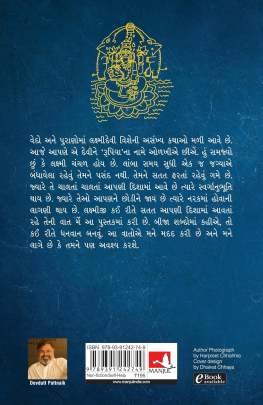 વેદો અને પુરાણોમાં લક્ષ્મીદેવી વિશેની અસંખ્ય કથાઓ મળી આવે છે.
આજે આપણે એ દેવીને 'રૂપિયા'ના નામે ઓળખીએ છીએ. હું સમજ્યો
છું કે લક્ષ્મી ચંચળ હોય છે. લાંબા સમય સુધી એક જ જગ્યાએ
બંધાયેલા રહેવું તેમને પસંદ નથી. તેમને સતત ફરતાં રહેવું ગમે છે.
જ્યારે તે ચાલતાં ચાલતાં આપણી દિશામાં આવે છે ત્યારે સ્વર્ગાનુભૂતિ
થાય છે. જ્યારે તેઓ આપણને છોડીને જાય છે ત્યારે નરકમાં હોવાની
લાગણી થાય છે. લક્ષ્મીજી કઈ રીતે સતત આપણી દિશામાં આવતાં
રહે તેની વાત મેં આ પુસ્તકમાં કરી છે. બીજા શબ્દોમાં કહીએ, તો
કઈ રીતે ધનવાન બનવું. આ વાતોએ મને મદદ કરી છે અને મને
લાગે છે કે તમને પણ અવશ્ય કરશે.
Devdutt Pattanaik
ISBN 978-93-91242-74-9
9789391242749
Non-fiction/Self-Help ₹195
www.manjulindia.com
MANJUL
Author Photograph
by Harpreet Chhachhia
Cover design
by Dhaivat Chhaya
eBook
available